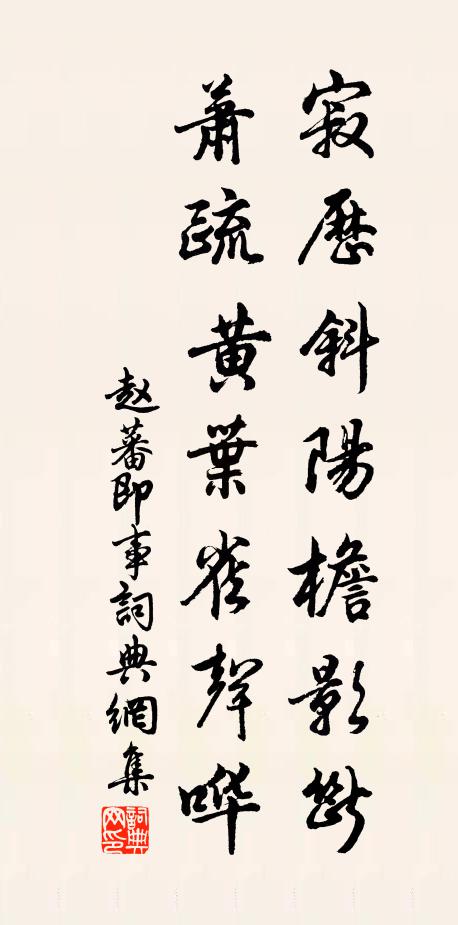 寂歷斜陽檐影斷
蕭疏黃葉雀聲嘩
赵蕃即事詞典網集
詞典網印